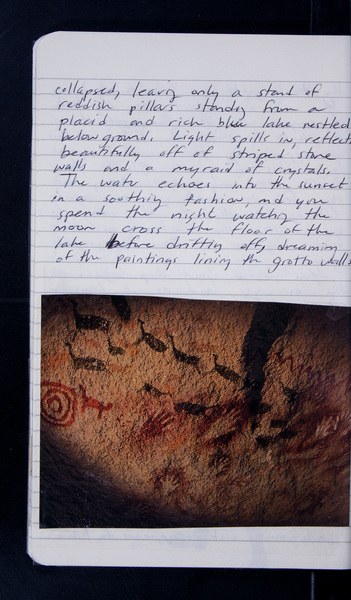 collapsed, leavig only a stand of
reddish pillars standg from a
placid and rich blue lake nestled
belowground. Light spills in, reflect
beautifully off of striped stone
walls and a myraid of crystals.
The wate echoes into the sunset
in a soothig fashion, and you
spend the night watchig the
moon cross the floor of the
lake before drifting off, dreaming
of the paintings lining the grotto walls